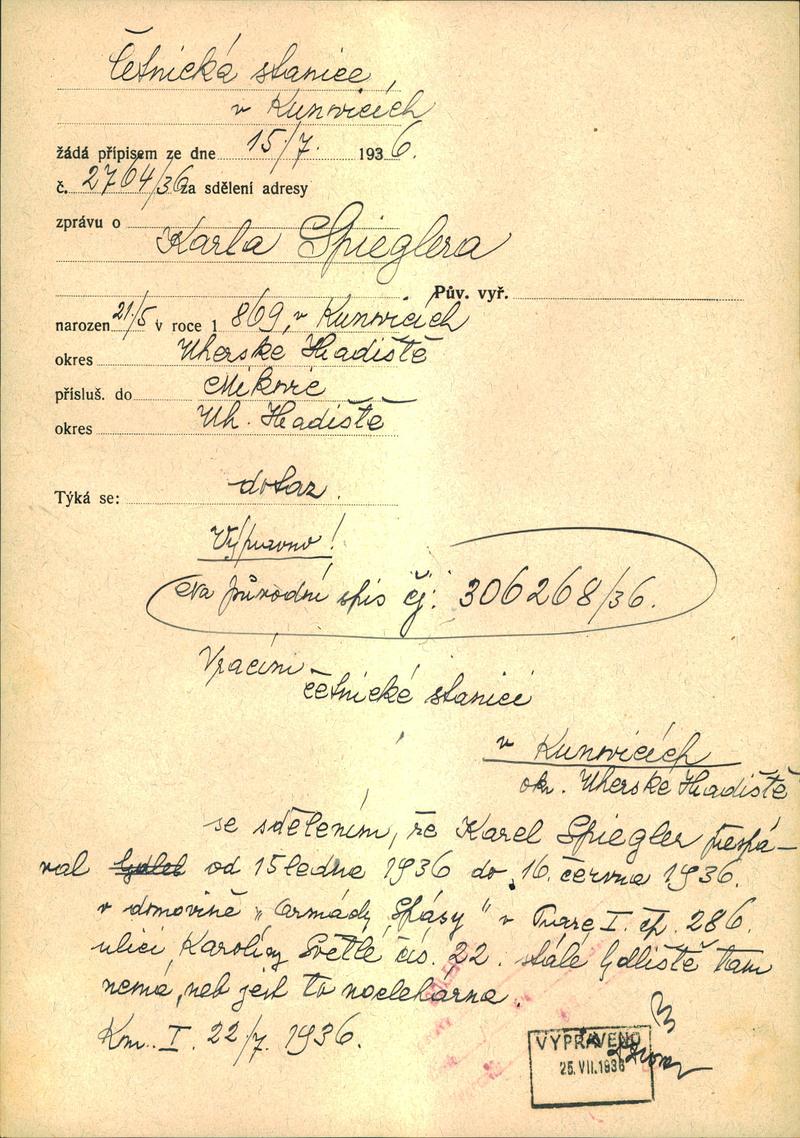 Četnická stanice,
v Kunovicích
žádá přípisem ze dne 15/7. 1936.
č. 2764/36 za sdělení adresy
zprávu o
Karla Spieglera
Pův. vyř.
narozen 21/5 v roce 1869, v Kunovicích
okres Uherské Hradiště
přísluš. do Mikovic
okres Uh. Hradiště
Týká se: dotaz.
Vypraveno!
Na původní spis čj: 306268/36.
Vracím
četnické stanici
v Kunovicích
okr. Uherské Hradiště
se sdělením, že Karel Spiegler přespá-
val bydlel od 15 ledna 1936 do 16. června 1936.
v domovině „Armády Spásy" v Praze I. čp. 286.
ulici Karoliny Světlé čís. 22. stálé bydliště tam
nemá, neb jest to noclehárna.
Km. I. 22/7. 1936.
VYPRAVENO
25.VII.1936